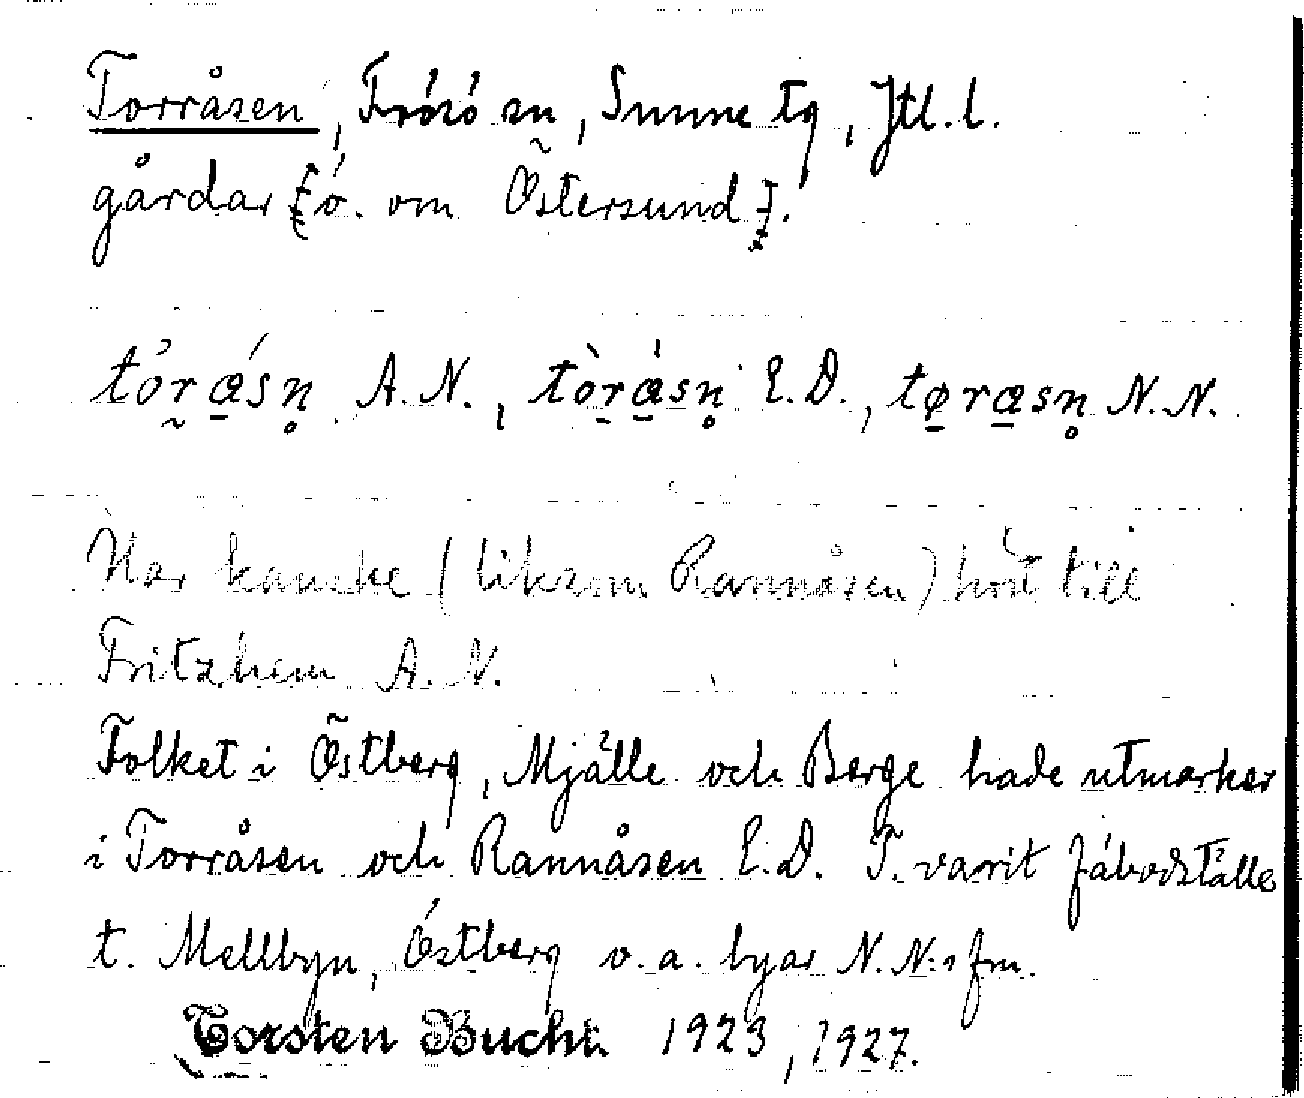 Torråsen, Frösö sn, Sunne tg, Jtl. l.
gårdar [ö. om Östersund].
tòrɑ́sn̥ A.N., tòrɑ́sn̥ E.D., tørɑsn̥ N.N.
Har kanske (liksom Rannåsen) hört till
Fritzhem A.N.
Folket i Östberg, Mjälle och Berge hade utmarker
i Torråsen och Rannåsen E.D. T. varit fäbodställe
t. Mellbyn, Östberg o.a. byar N.N:s fm.
Torsten Bucht. 1923, 1927.